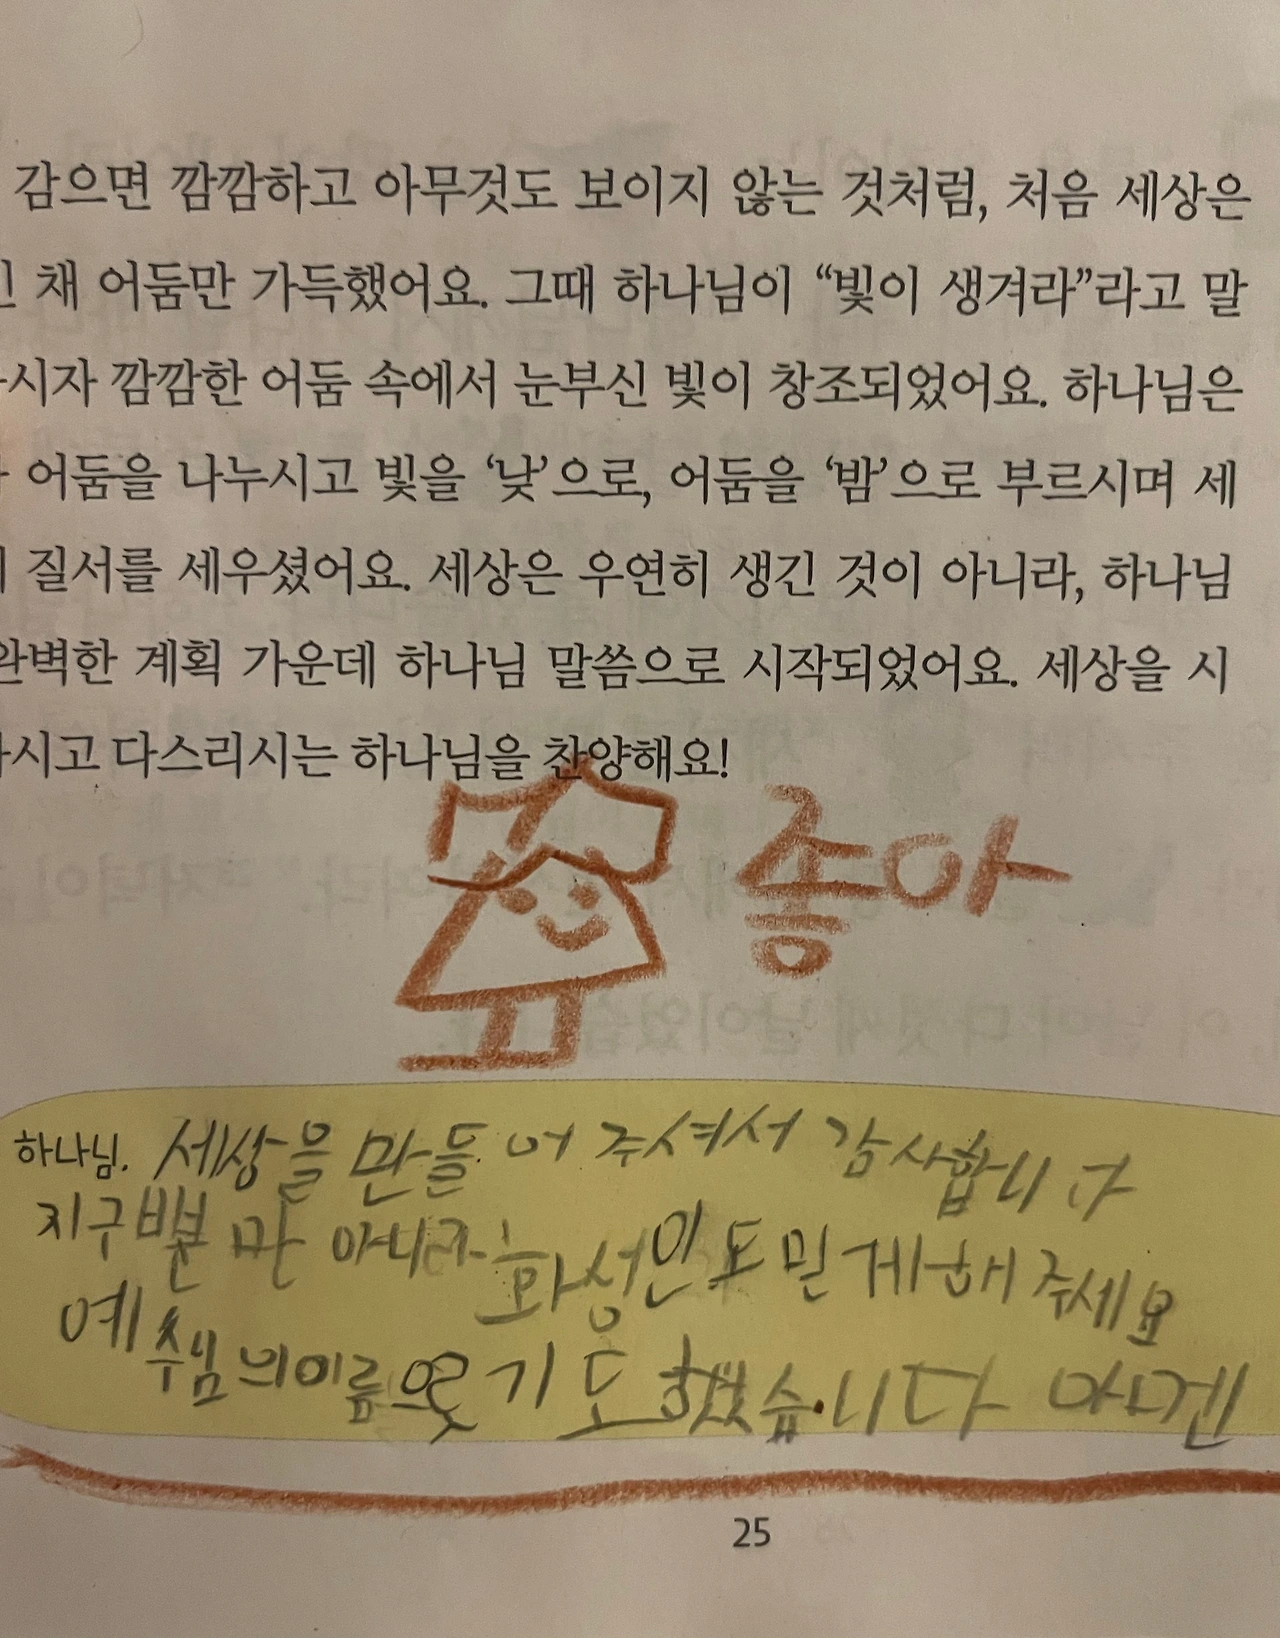 감으면 깜깜하고 아무것도 보이지 않는 것처럼, 처음 세상은
채 어둠만 가득했어요. 그때 하나님이 “빛이 생겨라”라고 말
시자 깜깜한 어둠 속에서 눈부신 빛이 창조되었어요. 하나님은
어둠을 나누시고 빛을 ‘낮’으로, 어둠을 ‘밤’으로 부르시며 세
질서를 세우셨어요. 세상은 우연히 생긴 것이 아니라, 하나님
완벽한 계획 가운데 하나님 말씀으로 시작되었어요. 세상을 시
시고 다스리시는 하나님을 찬양해요!
좋아
하나님. 세상을 만들어 주셔서 감사합니다
지구뿐만 아니라 화성인도 믿게 해 주세요
예수님의 이름으로 기도했습니다 아멘
25